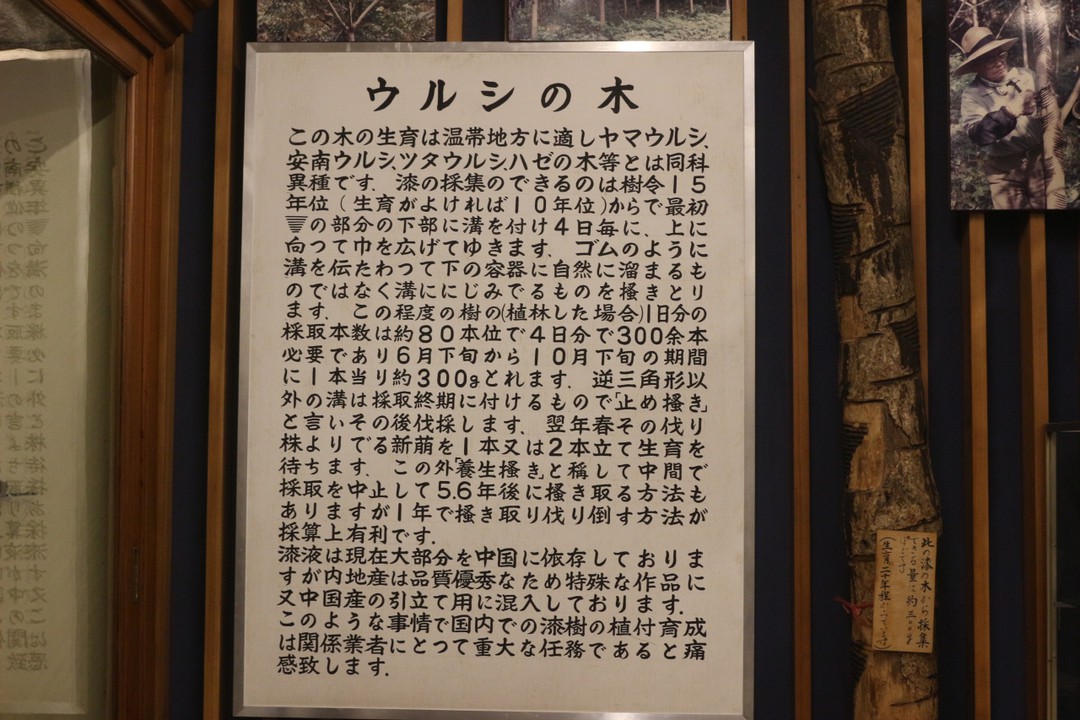 ウルシの木
この木の生育は温帯地方に適しヤマウルシ、
安南ウルシ、ツタウルシ、ハゼの木等とは同科
異種です. 漆の採集のできるのは樹令15
年位(生育がよければ10年位)からで最初
の部分の下部に溝を付け4日毎に、上に
向つて巾を広げてゆきます. ゴムのように
溝を伝たわつて下の容器に自然に溜まるも
のではなく溝ににじみでるものを掻きとり
ます. この程度の樹の(植林した場合)1日分の
採取本数は約80本位で4日分で300余本
必要であり6月下旬から10月下旬の期間
に1本当り約300gとれます. 逆三角形以
外の溝は採取終期に付けるもので「止め掻き」
と言いその後伐採します. 翌年春その伐り
株よりでる新萠を1本又は2本立て生育を
待ちます. この外「養生掻き」と称して中間で
採取を中止して5.6年後に掻き取る方法も
ありますが1年で掻き取り伐り倒す方法が
採算上有利です.
漆液は現在大部分を中国に依存しておりま
すが内地産は品質優秀なため特殊な作品に
又中国産の引立て用に混入しております.
このような事情で国内での漆樹の植付育成
は関係業者にとつて重大な任務であると痛
感致します.
此の漆の木から採集